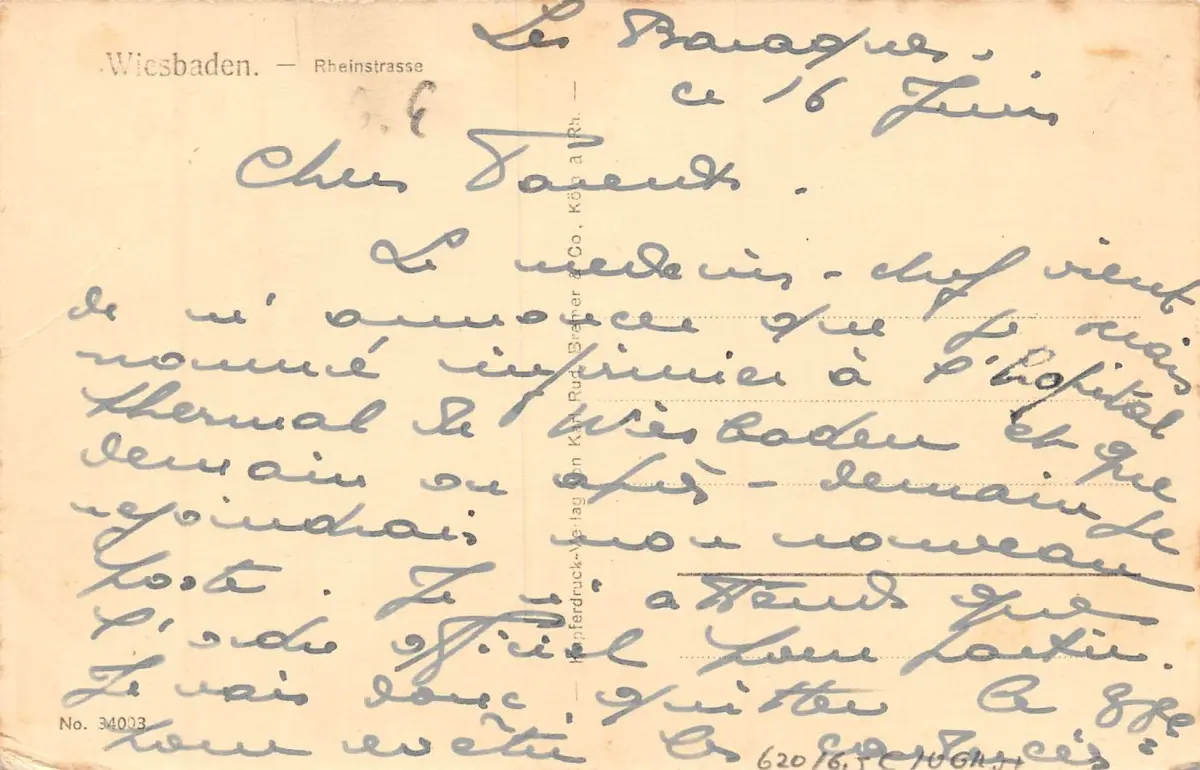 Les Baraques.
Wiesbaden. — Rheinstrasse
ce 16 Juin
Chers Parents.
Le medecin-chef vient
de m'annoncer que je suis
nommé infirmier à l'hopital
thermal de Wiesbaden et que
demain ou après-demain je
rejoindrais mon nouveau
poste. Je n'attends que
l'ordre officiel pour partir.
Je vais donc quitter le
No. 34003
pour revêtir les
Kupferdruck-Verlag von Karl Rud. Bremer & Co, Köln a. Rh.